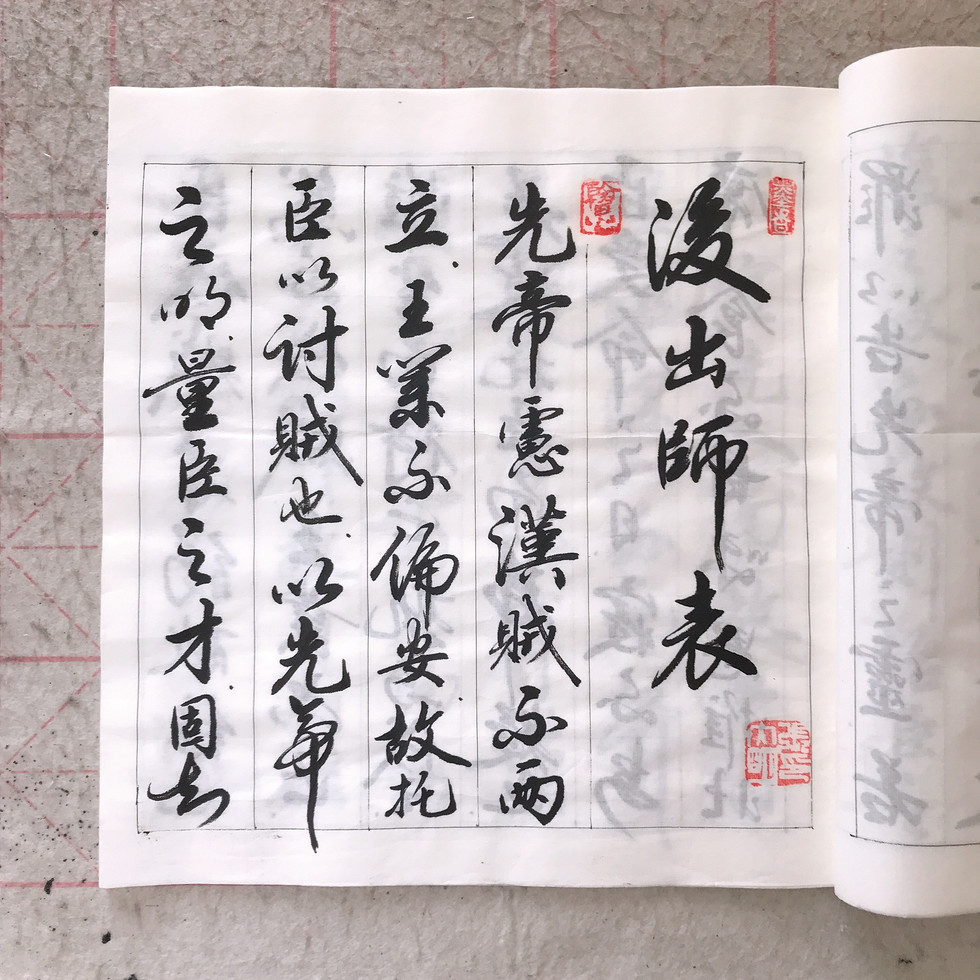 後出師表
先帝慮漢賊不兩
立王業不偏安故托
臣以討賊也以先帝
之明量臣之才固知